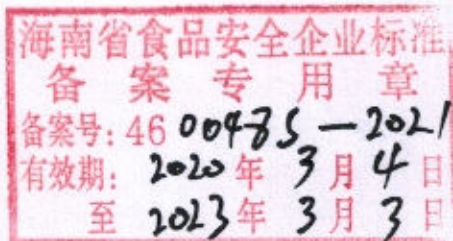 海南省食品安全企业标准
备案专用章
备案号: 46 00485—2021
有效期: 2020年3月4日
至 2023年3月3日